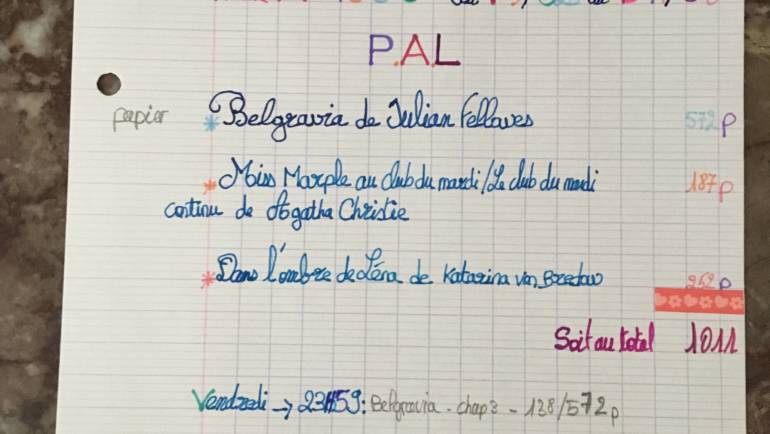 P.A.L
papier * Belgravia de Julian Fellowes 572 p
* Miss Marple au club du mardi/Le club du mardi 187 p
continu de Agatha Christie
* Dans l'ombre de Léna de Katarina von Bredow 252 p
Soit au total 1011
Vendredi → 23H59: Belgravia - chap 8 - 138/572 p